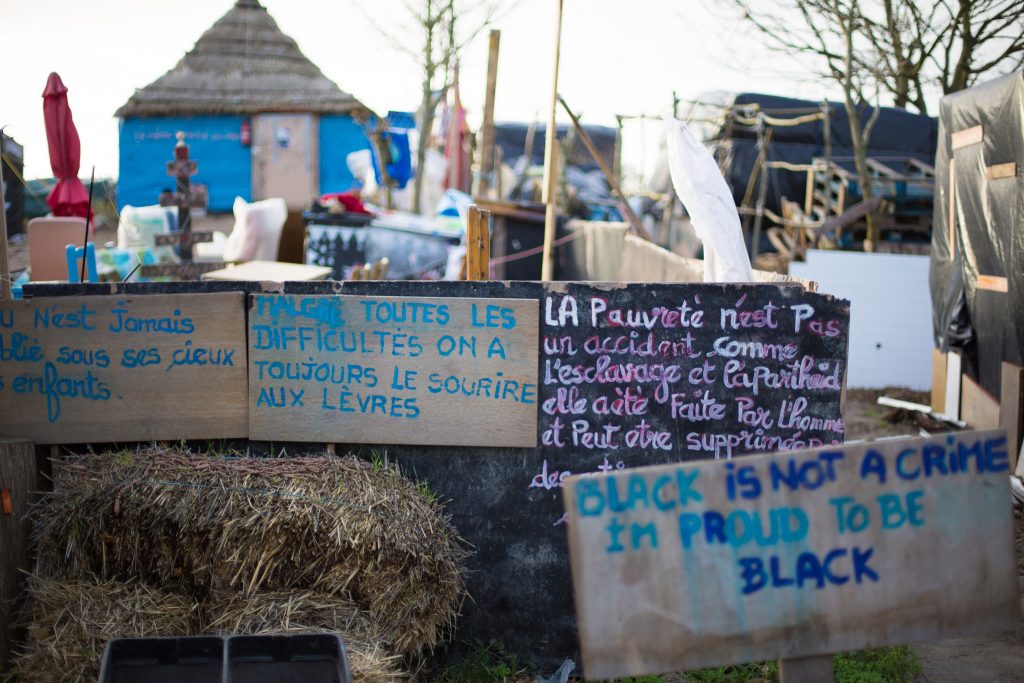 N'EST Jamais
sous ses cieux
enfants.
MALGRÉ TOUTES LES
DIFFICULTÉS ON A
TOUJOURS LE SOURIRE
AUX LÈVRES
LA Pauvreté n'est Pas
un accident comme
L'esclavage et l'apartheid
elle a été Faite Par L'homme
et Peut être supprimée
BLACK iS NOT A CRiME
I'm PROUD TO BE
BLACK